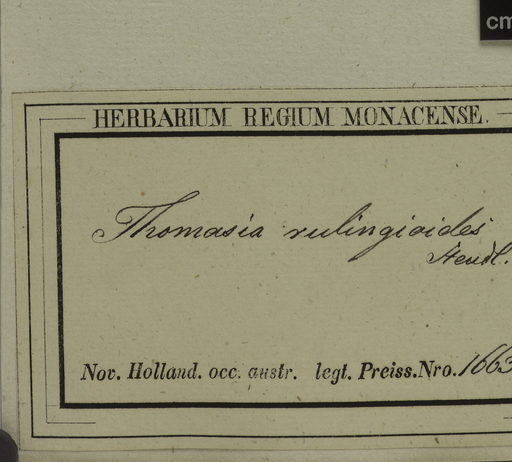 cm
HERBARIUM REGIUM MONACENSE.
Thomasia rulingioides
Steudl.
Nov. Holland. occ. austr. legt. Preiss. Nro. 1663